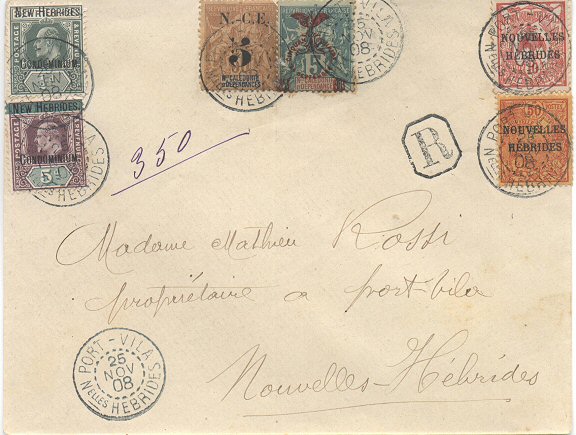 NEW HEBRIDES
CONDOMINIUM
NEW HEBRIDES
POSTAGE
REVENUE
CONDOMINIUM
5
N.-C.E.
5
Nlle CALÉDONIE
ET DÉPENDANCES
15
PORT-VILA
25
NOV
08
Nelles HÉBRIDES
NOUVELLES
HÉBRIDES
10
50
NOUVELLES
HÉBRIDES
350
R
Madame Mathieu Rossi
propriétaire a port-vila
Nouvelles-Hébrides
PORT-VILA
25
NOV
08
Nelles HÉBRIDES